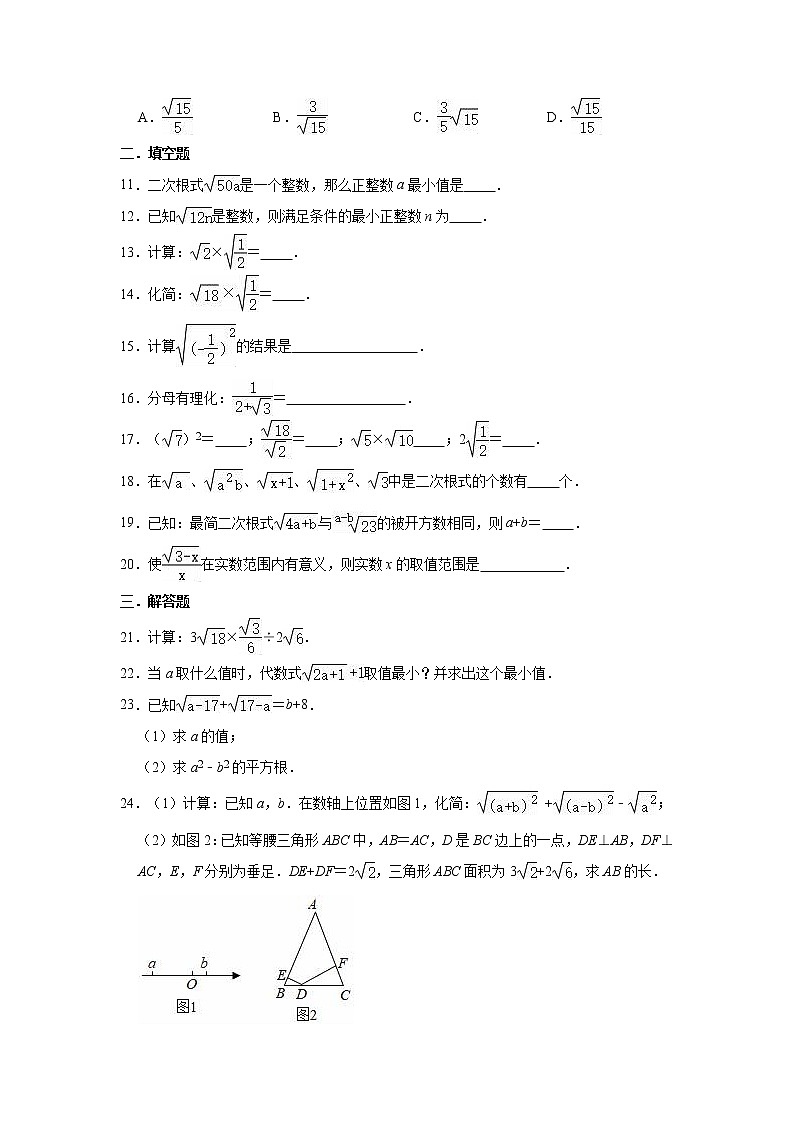 A.√15/5 B.3/√15 C.3/5√15 D.√15/15
二.填空题
11.二次根式√(50a)是一个整数,那么正整数a最小值是____.
12.已知√(12n)是整数,则满足条件的最小正整数n为____.
13.计算:√2×√(1/2)=____.
14.化简:√18×√(1/2)=____.
15.计算√((-1/2)²)的结果是________________.
16.分母有理化:1/(2+√3)=_______________.
17.(√7)²=____;√18/√2=____;√5×√10____;2√(1/2)=____.
18.在√a、√(a²b)、√(x+1)、√(1+x²)、√3中是二次根式的个数有____个.
19.已知:最简二次根式√(4a+b)与ᵃ⁻ᵇ√23的被开方数相同,则a+b=____.
20.使√(3-x)/x在实数范围内有意义,则实数x的取值范围是___________.
三.解答题
21.计算:3√18×√3/6÷2√6.
22.当a取什么值时,代数式√(2a+1)+1取值最小?并求出这个最小值.
23.已知√(a-17)+√(17-a)=b+8.
(1)求a的值;
(2)求a²﹣b²的平方根.
24.(1)计算:已知a,b.在数轴上位置如图1,化简:√((a+b)²)+√((a-b)²)﹣√(a²);
(2)如图2:已知等腰三角形ABC中,AB=AC,D是BC边上的一点,DE⊥AB,DF⊥
AC,E,F分别为垂足.DE+DF=2√2,三角形ABC面积为3√2+2√6,求AB的长.
a b
O
图1
A
E F
B D C
图2